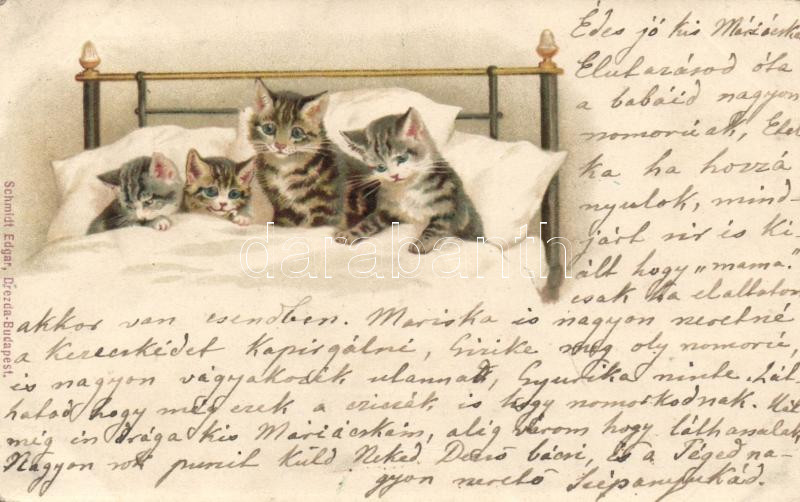 Édes jó kis Máriácska
Elutazásod óta
a babáid nagyon
nomorúak, Etel
ka ha hozzá
nyulok, mind-
járt sir és ki-
ált hogy „mama."
csak ha elaltatom
akkor van csendben. Mariska is nagyon neretné
a kezecskédet kapirgálni, Gizike meg oly nomorú,
is nagyon vágyakozik utannad, Gyurika ninte. Lát-
hatod hogy még ezek a cziczák is hogy nomorkodnak. Hát
még én drága kis Máriácskám, alig várom hogy láthassalak,
Nagyon sok puszit küld Neked Dezső bácsi, és a Téged na-
gyon nerető Szépanyukád.
Schmidt Edgar, Drezda-Budapest.
darabanth